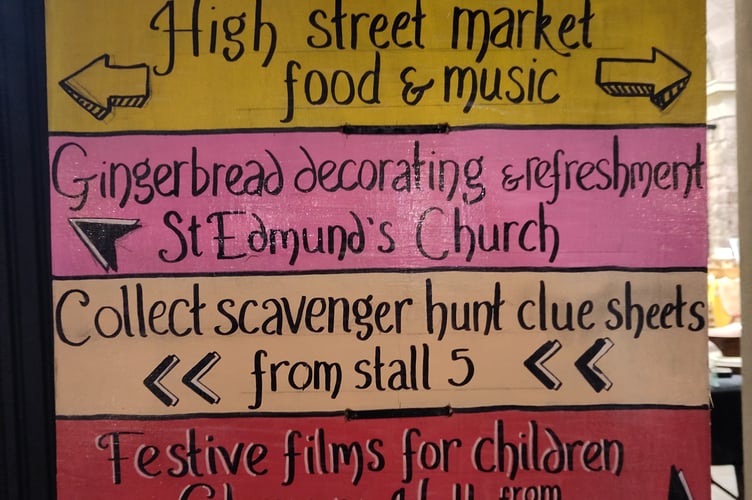 High street market
food & music
Gingerbread decorating & refreshment
St Edmund's Church
Collect scavenger hunt clue sheets
from stall 5
Festive films for children
from